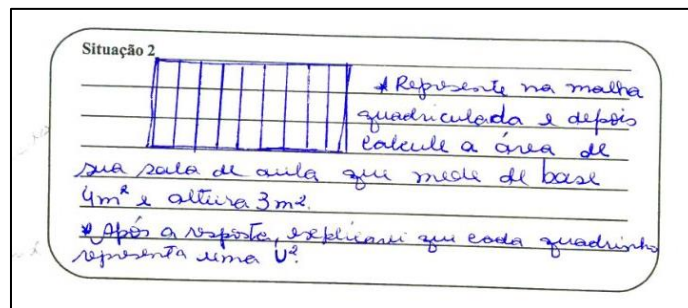 Situação 2
* Represente na malha
quadriculada e depois
calcule a área de
sua sala de aula que mede de base
4m² e altura 3m².
* Após a resposta, explicarei que cada quadrinho
representa uma U².